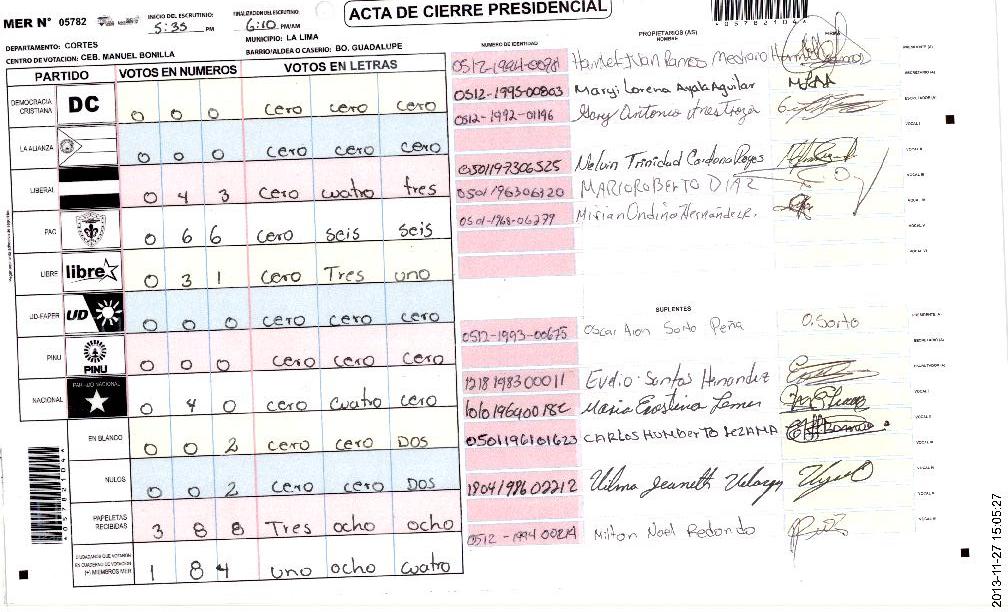 MER N° 05782
INICIO DEL ESCRUTINIO:
5:35 PM
FINALIZACION DEL ESCRUTINIO:
6:10 PM/AM
ACTA DE CIERRE PRESIDENCIAL
DEPARTAMENTO: CORTES
MUNICIPIO: LA LIMA
CENTRO DE VOTACION: CEB. MANUEL BONILLA
BARRIO/ALDEA O CASERIO: BO. GUADALUPE
PARTIDO VOTOS EN NUMEROS VOTOS EN LETRAS
DEMOCRACIA CRISTIANA DC 0 0 0 cero cero cero
LA ALIANZA 0 0 0 cero cero cero
LIBERAL 0 4 3 cero cuatro tres
PAC 0 6 6 cero seis seis
LIBRE libre 0 3 1 cero Tres uno
UD-FAPER UD 0 0 0 cero cero cero
PINU PINU 0 0 0 cero cero cero
NACIONAL PARTIDO NACIONAL 0 4 0 cero cuatro cero
EN BLANCO 0 0 2 cero cero DOS
NULOS 0 0 2 cero cero DOS
PAPELETAS RECIBIDAS 3 8 8 Tres ocho ocho
CIUDADANOS QUE VOTARON EN CUADERNO DE VOTACION (+) MIEMBROS MER 1 8 4 uno ocho cuatro
*05782104*
NUMERO DE IDENTIDAD
PROPIETARIOS (AS)
NOMBRE
FIRMA
PRESIDENTE (A)
Maryi Lorena Ayala Aguilar SECRETARIO (A)
0512-1995-00803
0512-1992-01196 Gary Antonio ESCRUTADOR (A)
VOCAL I
0501197306525 Nelvin Trinidad Cardona Reyes VOCAL II
0501196306320 MARIO ROBERTO DIAZ VOCAL III
0501-1968-06279 Mirian Ondina Hernández R. VOCAL IV
VOCAL V
VOCAL VI
SUPLENTES
0512-1993-00675 Oscar Sorto Peña O. Sorto PRESIDENTE (A)
SECRETARIO (A)
1218198300011 Evdio Santos Hernandez ESCRUTADOR (A)
Maria Lemus VOCAL I
0501196101623 CARLOS HUMBERTO LEZAMA VOCAL II
VOCAL III
1804198602212 Vilma Jeaneth VOCAL IV
VOCAL V
0512-1994 Milton Noel Redondo
2013-11-27 15:05:27